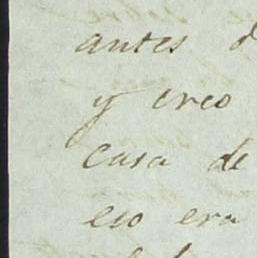 antes
y creo
casa de
eso era